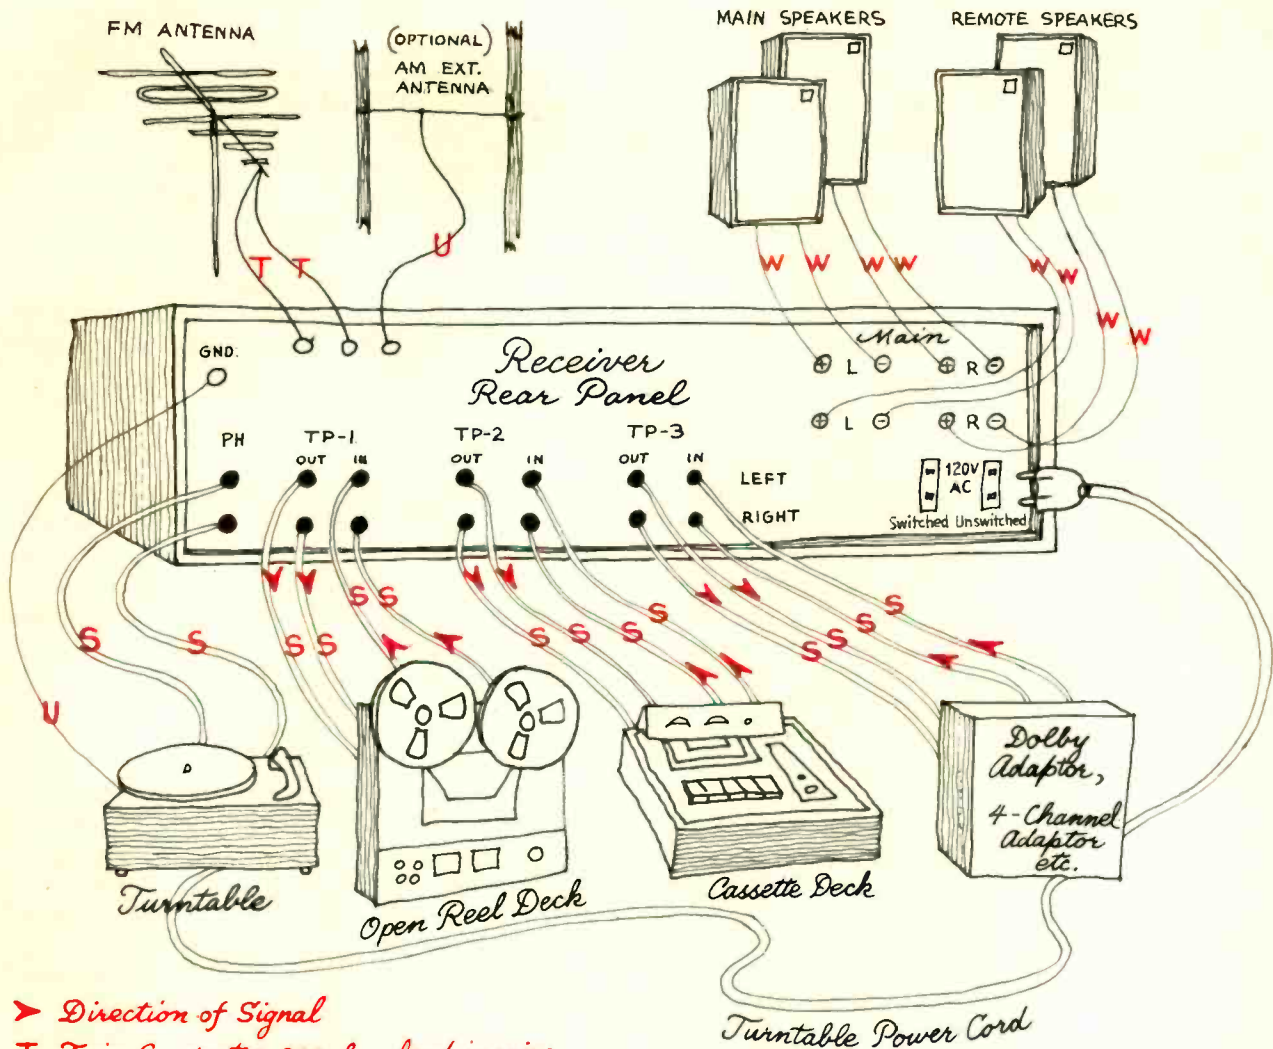 FM ANTENNA
(OPTIONAL)
AM EXT.
ANTENNA
MAIN SPEAKERS
REMOTE SPEAKERS
T T
U
W W W W
W W
W W
GND.
Receiver
Rear Panel
Main
+ L - + R -
+ L - + R -
PH
TP-1
OUT IN
TP-2
OUT IN
TP-3
OUT IN
LEFT
RIGHT
120V
AC
Switched Unswitched
S S
S S
S S
S S S S
S S S S
U
Turntable
Open Reel Deck
Cassette Deck
Dolby
Adaptor,
4-Channel
Adaptor
etc.
Direction of Signal
Turntable Power Cord